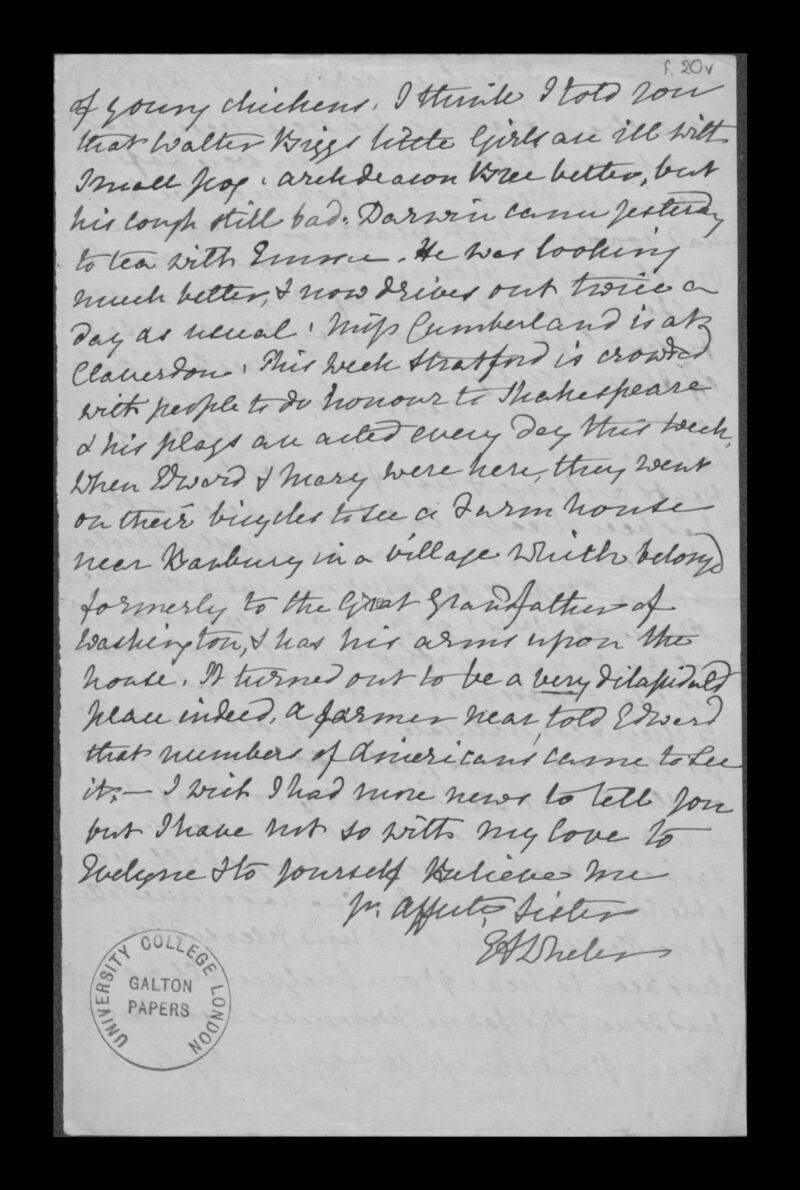 f. 20v
of young chickens. I think I told you
that Walter Biggs little Girls are ill with
Small pox. archdeacon Bree better, but
his cough still bad. Darwin came yesterday
to tea with Emma. He was looking
much better, & now drives out twice a
day as usual. Miss Cumberland is at
Claverdon. This week Stratford is crowded
with people to do honour to Shakespeare
& his plays are acted every day this week,
When Edward & Mary were here, they went
on their bicycles to see a Farm house
near Banbury in a village which belongd
formerly to the Great Grandfather of
Washington, & has his arms upon the
house. It turned out to be a very dilapidatd
place indeed. a farmer near, told Edward
that numbers of Americans came to see
it.— I wish I had more news to tell you
but I have not so with my love to
Evelyne & to yourself Believe me
yr. affecte. Sister
EAWheler
UNIVERSITY COLLEGE LONDON
GALTON
PAPERS